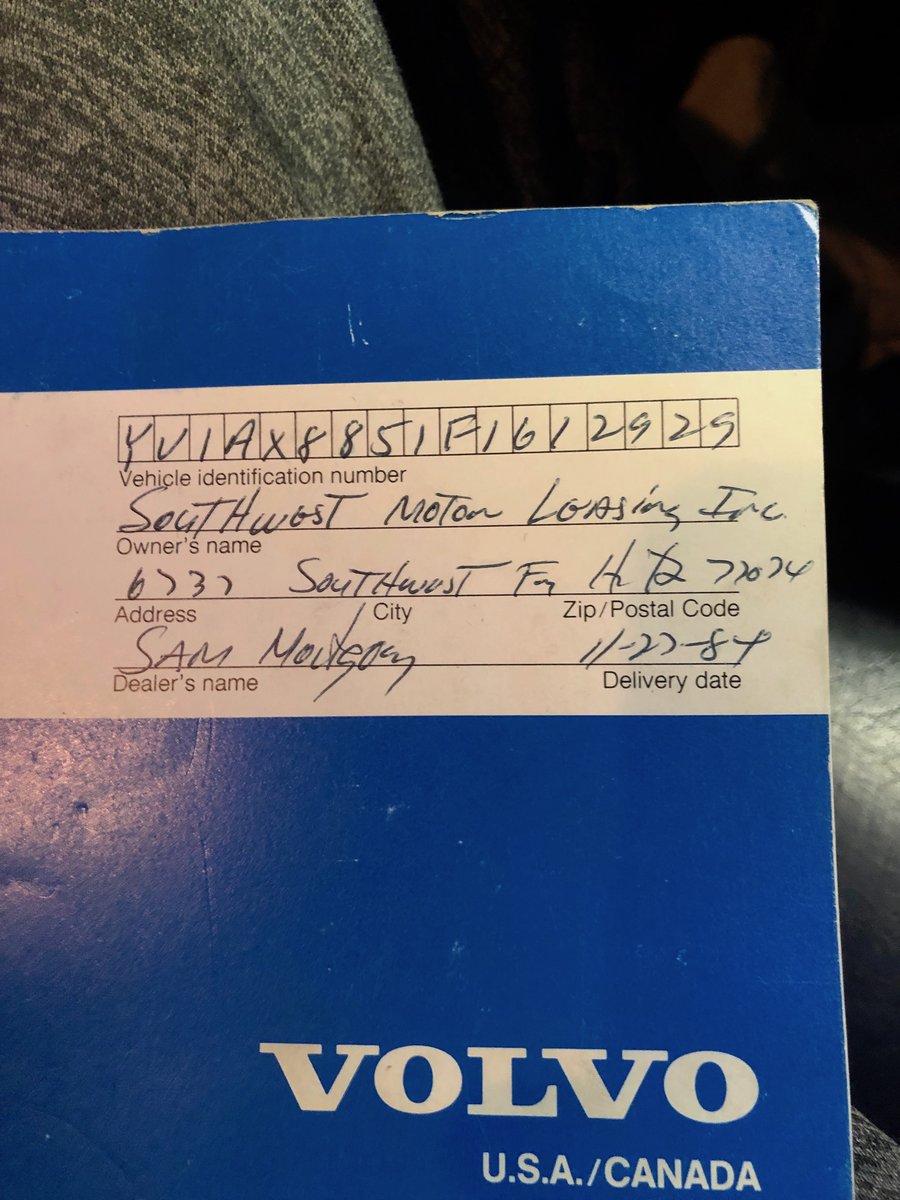 YV1AX8851F1612929
Vehicle identification number
SOUTHWEST MOTOR LEASing Inc.
Owner's name
6737 SOUTHWEST Fwy H TX 77074
Address City Zip/Postal Code
SAM Montgomery 11-27-84
Dealer's name Delivery date
VOLVO
U.S.A./CANADA